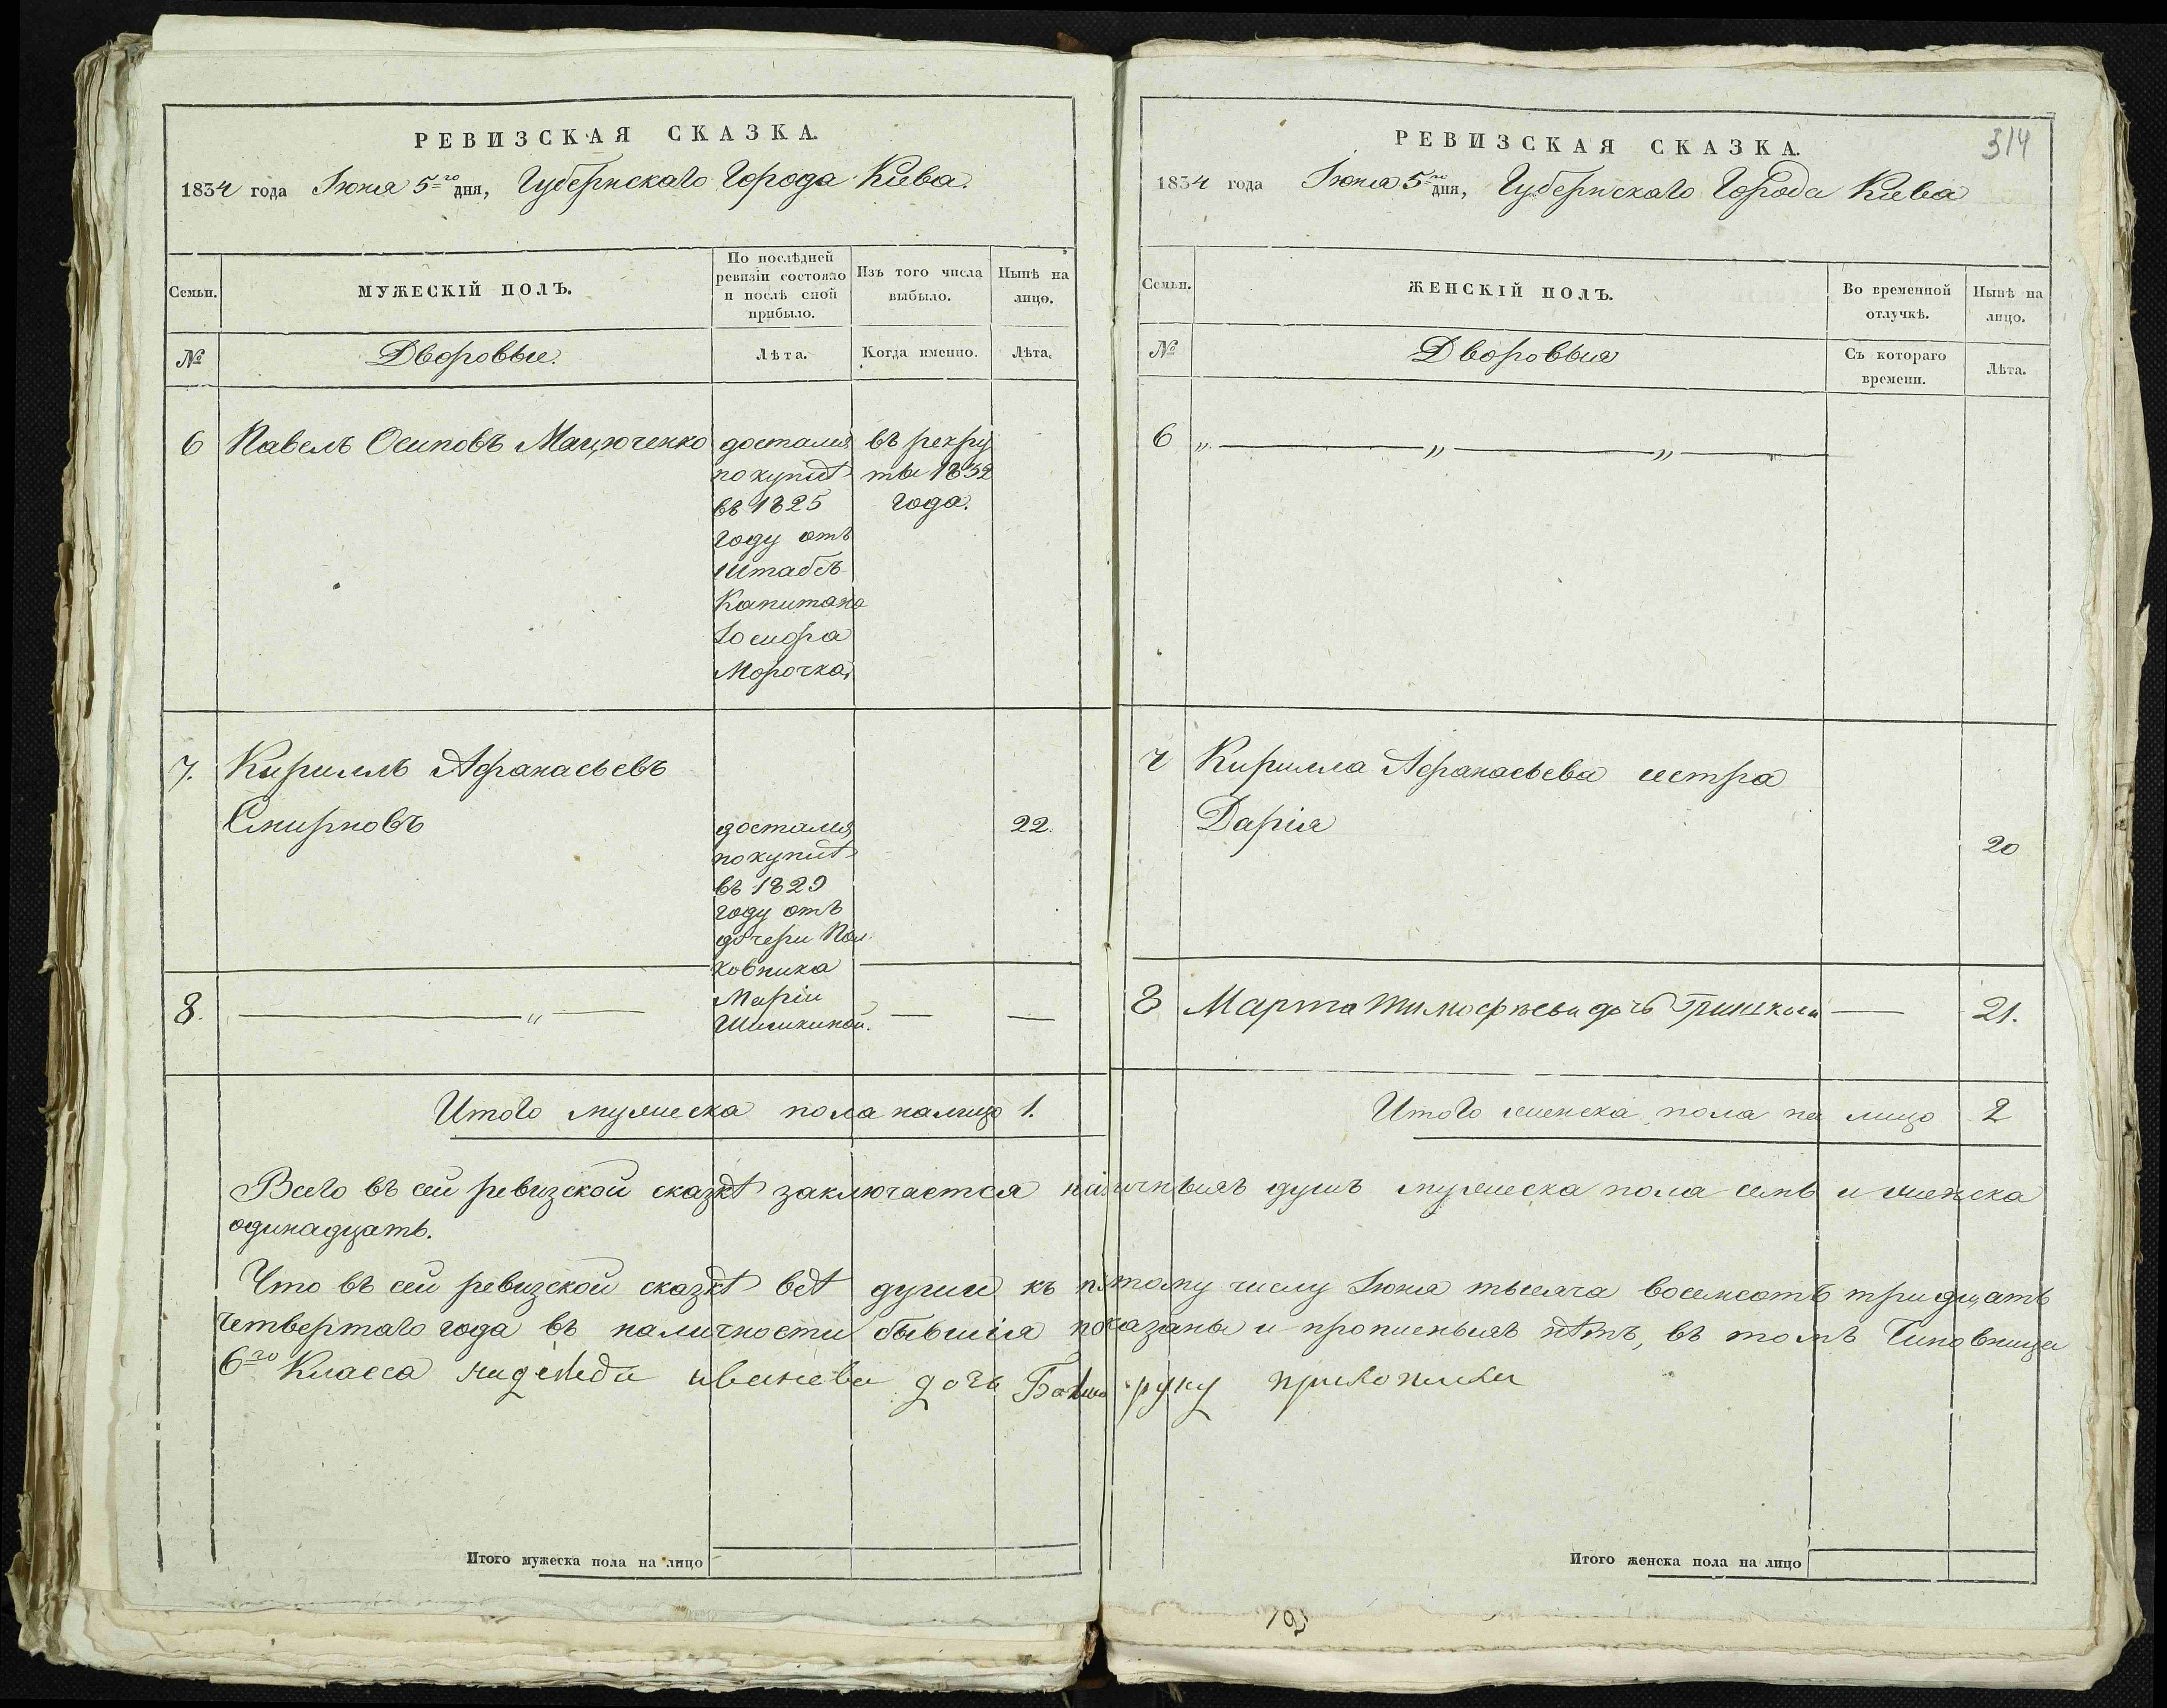 РЕВИЗСКАЯ СКАЗКА.
1834 года Іюня 5го дня, Губернскаго Города Кіева.
Семьи.
МУЖЕСКІЙ ПОЛЪ.
По послѣдней
ревизіи состояло
и послѣ оной
прибыло.
Изъ того числа
выбыло.
Нынѣ на
лицо.
№
Дворовые.
Лѣта.
Когда именно.
Лѣта.
6 Павелъ Осиповъ Мацюченко
достался
по купчѣ
въ 1825
году отъ
Штабсъ
Капитана
Іосифа
Морочка,
въ рекру
ты 1832
года.
7. Кирилъ Афанасьевъ
Смирновъ
достался
по купчѣ
въ 1829
году отъ
дочери Пол
ковника
Маріи
Шишкиной.
22.
8. — „ — — —
Итого мужеска пола на лицо 1.
РЕВИЗСКАЯ СКАЗКА.
314
1834 года Іюня 5го дня, Губернскаго Города Кіева
Семьи.
ЖЕНСКІЙ ПОЛЪ.
Во временной
отлучкѣ.
Нынѣ на
лицо.
№
Дворовыя
Съ котораго
времени.
Лѣта.
6 „ — „ — „ —
7 Кирилла Афанасьева сестра
Дарія
20
8 Марта Тимофѣева дочь — 21.
Итого женска пола на лицо 2
Всего въ сей ревизской сказкѣ заключается наличныхъ душъ мужеска пола семь и женска
одинадцать.
Что въ сей ревизской сказкѣ всѣ души къ пятому числу Іюня тысяча восемсотъ тридцать
четвертаго года въ наличности бывшія показаны и прописныхъ нѣтъ, въ томъ Чиновница
6го Класса надежда иванова дочь руку приложила
Итого мужеска пола на лицо
Итого женска пола на лицо